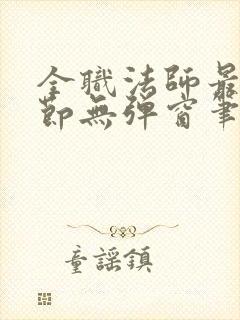 全職法師最
節無彈窗筆
童謠鎮